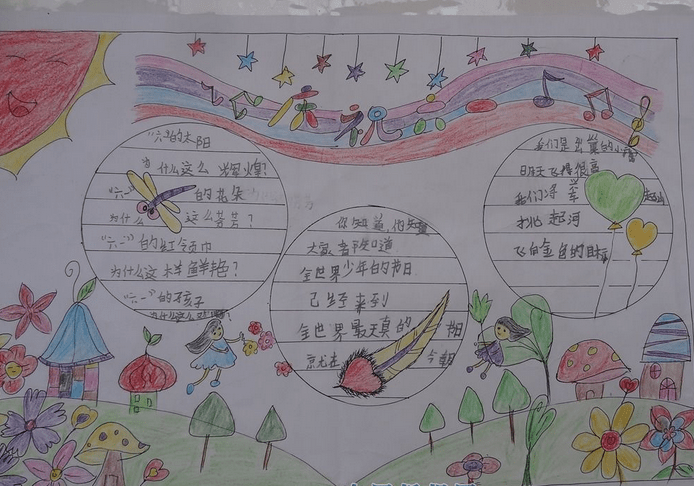 庆祝六一
"六一"的太阳
为什么这么辉煌?
"六一"的花朵
为什么这么芬芳?
"六一"的红领巾
为什么这样鲜艳?
"六一"的孩子
为什么这么
你知道,他知道
大家 知道
全世界少年的节日
已经来到
全世界最天真的
就在 今朝
我们是出巢的小
明天飞得很高
我们将
挑起河
飞向金色的目标